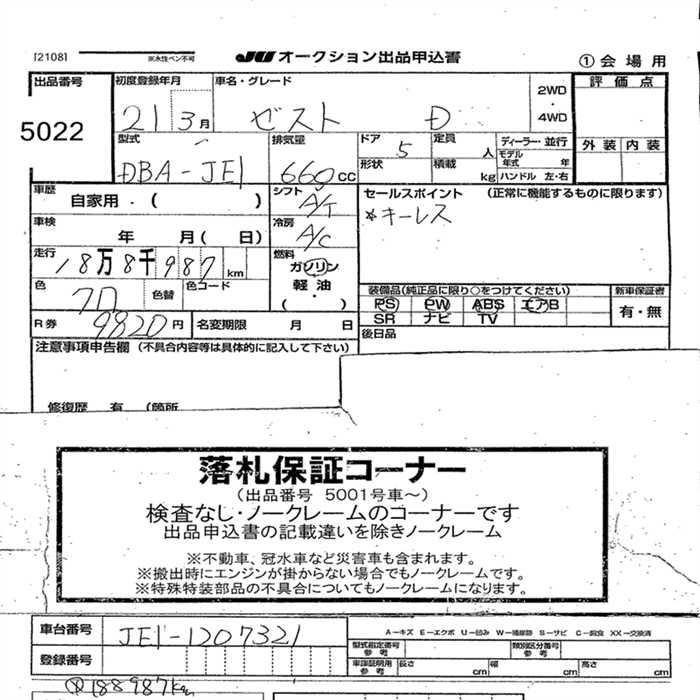 [2108] ※水性ペン不可 JU オークション出品申込書 ①会場用
出品番号 初度登録年月 車名・グレード 2WD・4WD 評価点
5022 21 3月 ゼスト D
型式 排気量 ドア 定員 ディーラー・並行 外装 内装
DBA-JE1 660cc 5 人 モデル年式 年
形状 積載 kg ハンドル 左・右
車歴 自家用・( ) シフト A/T セールスポイント (正常に機能するものに限ります)
車検 年 月( 日) 冷房 A/C *キーレス
走行 18万8千987km 燃料 ガソリン 軽油 ( ・ )
色 7D 色替 色コード 装備品(純正品に限り○をつけてください) 新車保証書
PS PW ABS エアB 有・無
SR ナビ TV
R券 9820円 名変期限 月 日 後日品
注意事項申告欄(不具合内容等は具体的に記入して下さい)
修復歴 有 (箇所
落札保証コーナー
(出品番号 5001号車~)
検査なし・ノークレームのコーナーです
出品申込書の記載違いを除きノークレーム
※不動車、冠水車など災害車も含まれます。
※搬出時にエンジンが掛からない場合でもノークレームです。
※特殊特装部品の不具合についてもノークレームになります。
車台番号 JE1-1207321 A-キズ E-エクボ U-凹み W-補修跡 S-サビ C-腐食 XX-交換済
登録番号 型式指定番号 参考 類別区分番号 参考
車庫証明用 参考 長さ cm 幅 cm 高さ cm
188987km